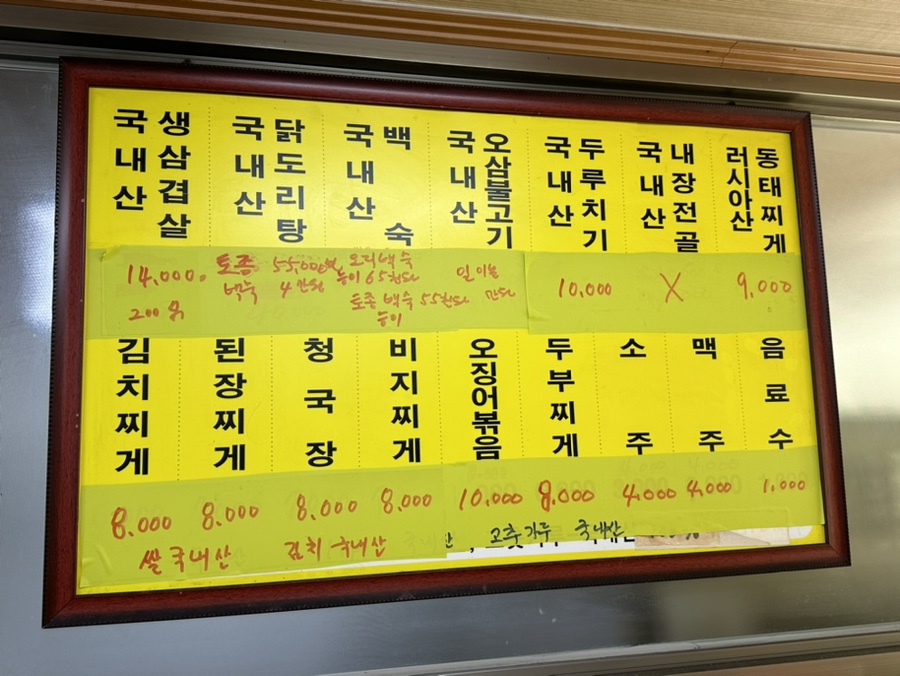 생삼겹살 국내산
닭도리탕 국내산
백숙 국내산
오삼불고기 국내산
두루치기 국내산
내장전골 국내산
동태찌게 러시아산
14,000. 토종 55,000 오리백숙
백숙 4만원 둥이 65천원
200g. 토종백숙 55천원
둥이
10,000 X 9,000
김치찌게
된장찌게
청국장
비지찌게
오징어볶음
두부찌게
소주
맥주
음료수
8.000 8.000 8.000 8.000 10.000 8.000 4.000 4.000 1.000
쌀 국내산 김치 국내산 , 고춧가루 국내산